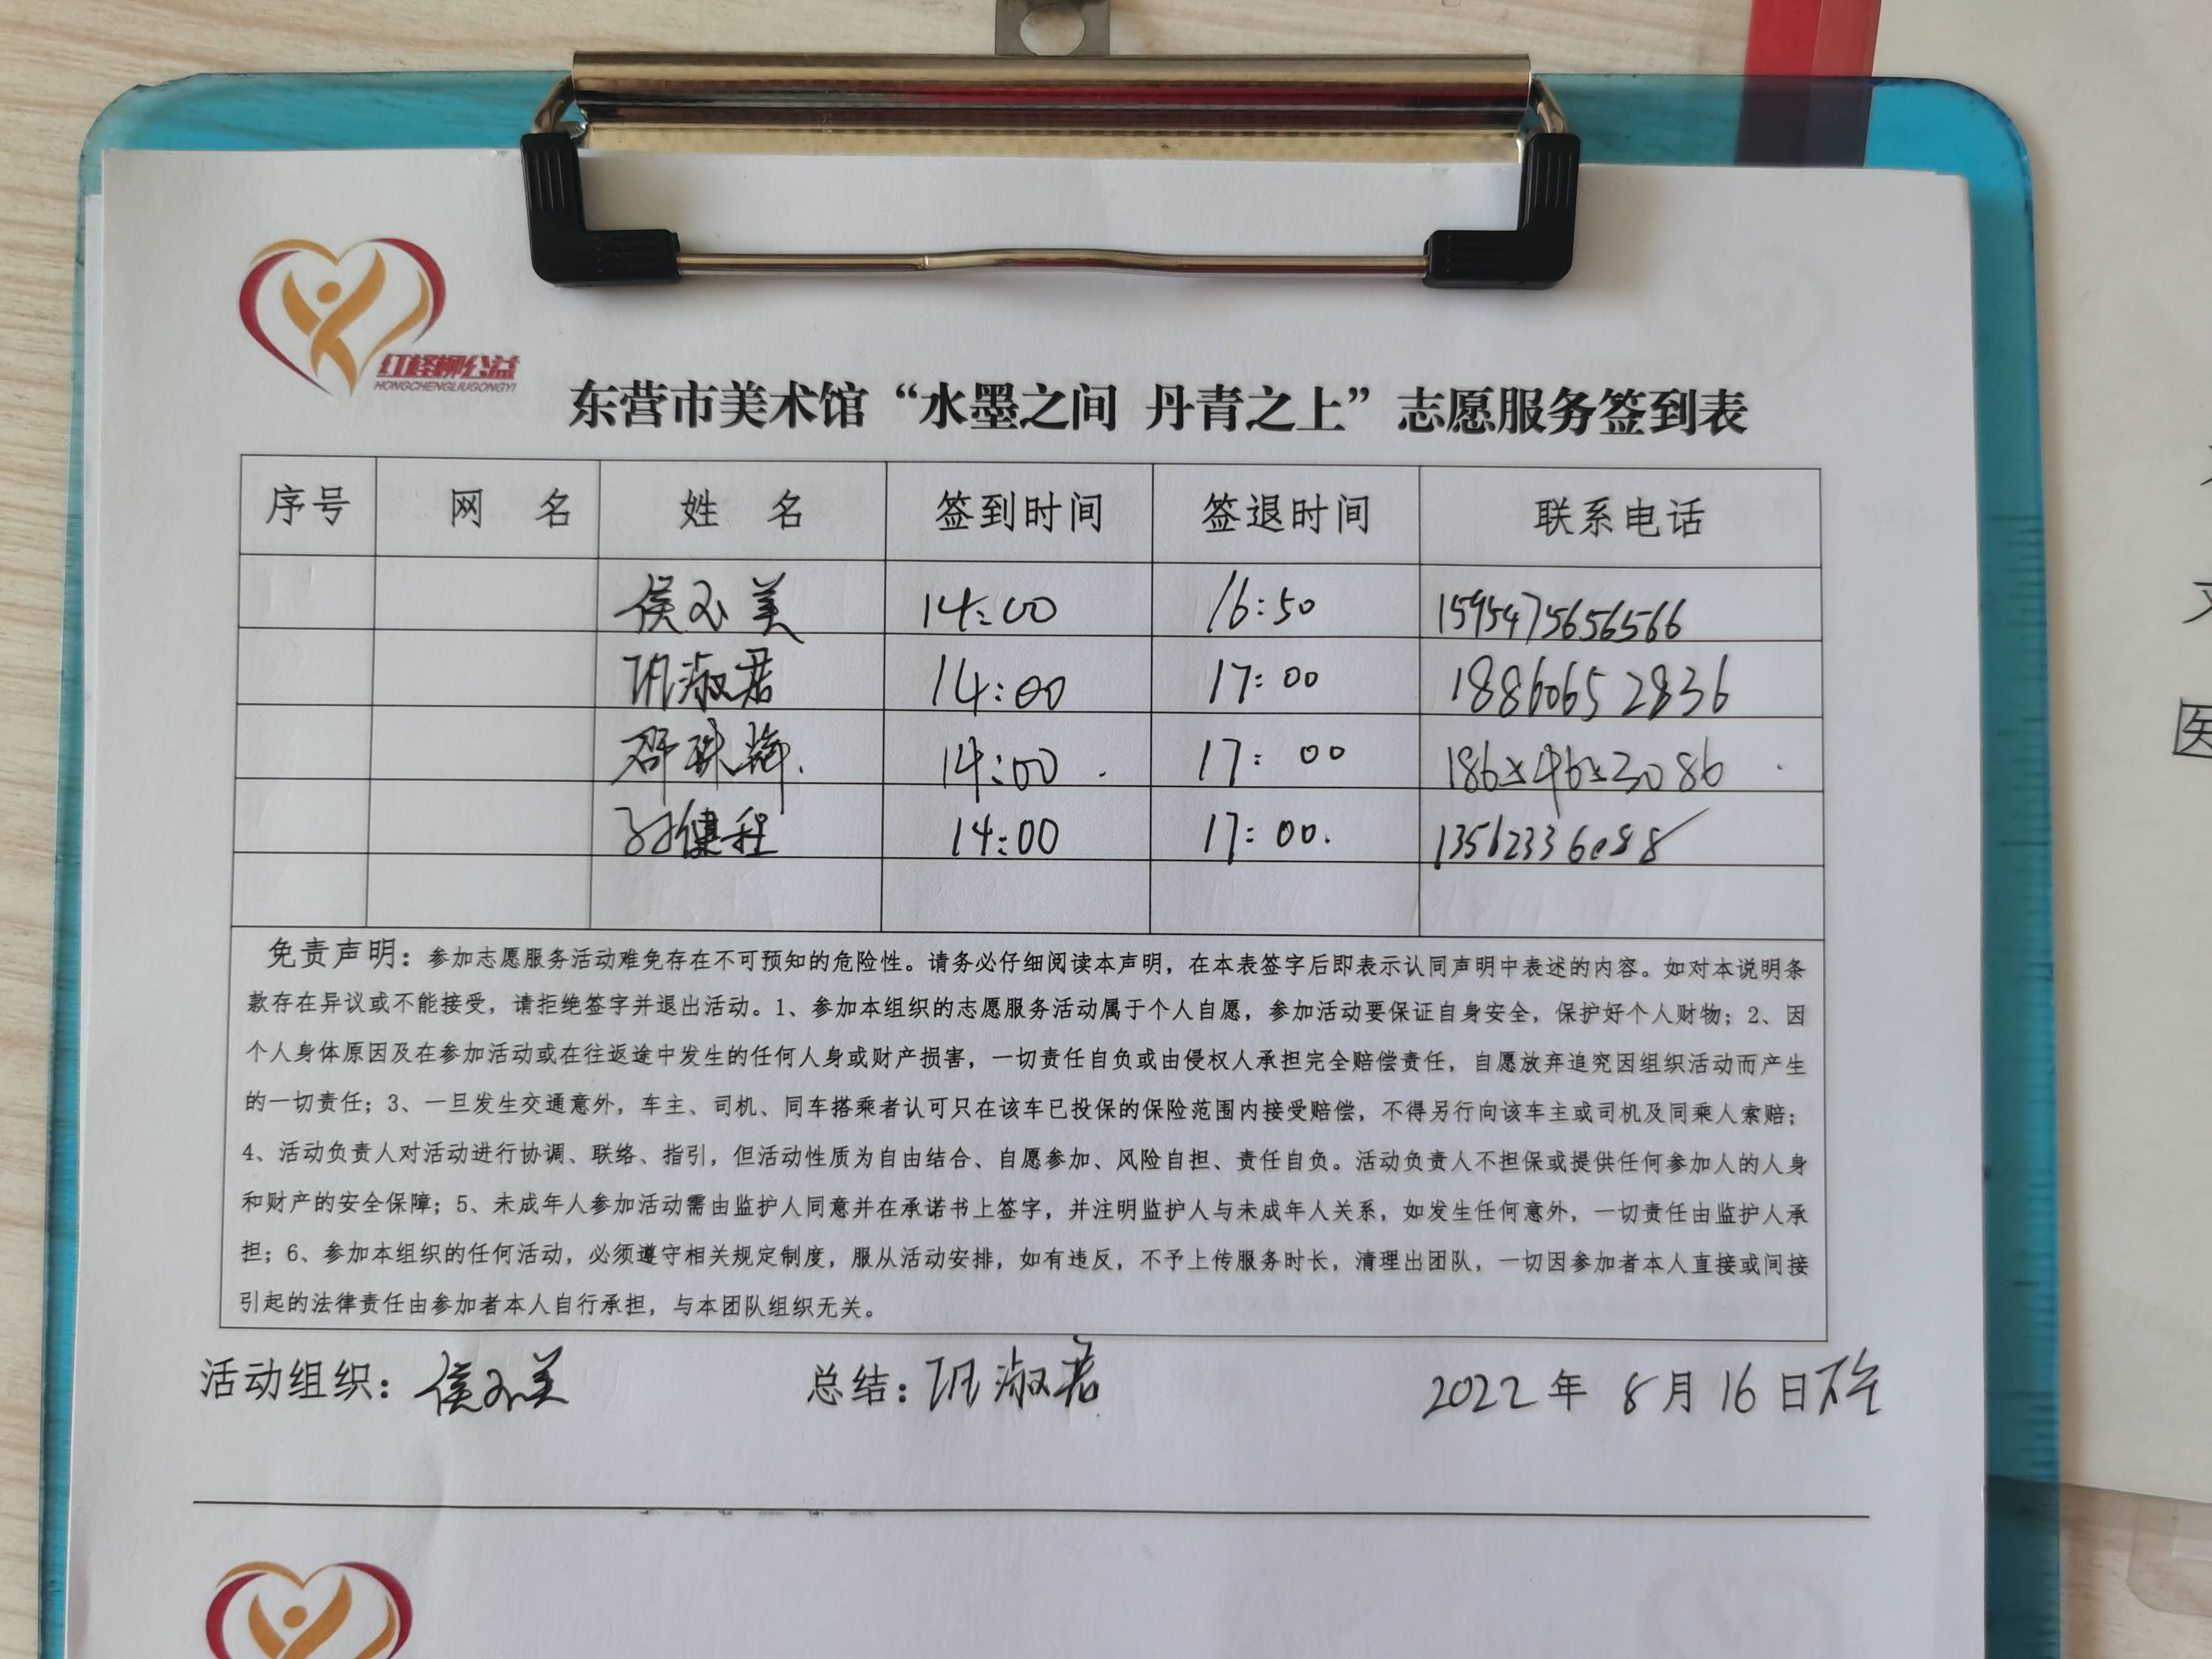 红柽柳公益
HONGCHENGLIUGONGYI
东营市美术馆“水墨之间 丹青之上”志愿服务签到表
序号 网 名 姓 名 签到时间 签退时间 联系电话
侯 美 14:00 16:50 1595475656566
巩淑君 14:00 17:00 18860652836
邵珠 14:00 17:00
孙健程 14:00 17:00. 13562336088
免责声明：参加志愿服务活动难免存在不可预知的危险性。请务必仔细阅读本声明，在本表签字后即表示认同声明中表述的内容。如对本说明条
款存在异议或不能接受，请拒绝签字并退出活动。1、参加本组织的志愿服务活动属于个人自愿，参加活动要保证自身安全，保护好个人财物；2、因
个人身体原因及在参加活动或在往返途中发生的任何人身或财产损害，一切责任自负或由侵权人承担完全赔偿责任，自愿放弃追究因组织活动而产生
的一切责任；3、一旦发生交通意外，车主、司机、同车搭乘者认可只在该车已投保的保险范围内接受赔偿，不得另行向该车主或司机及同乘人索赔；
4、活动负责人对活动进行协调、联络、指引，但活动性质为自由结合、自愿参加、风险自担、责任自负。活动负责人不担保或提供任何参加人的人身
和财产的安全保障；5、未成年人参加活动需由监护人同意并在承诺书上签字，并注明监护人与未成年人关系，如发生任何意外，一切责任由监护人承
担；6、参加本组织的任何活动，必须遵守相关规定制度，服从活动安排，如有违反，不予上传服务时长，清理出团队，一切因参加者本人直接或间接
引起的法律责任由参加者本人自行承担，与本团队组织无关。
活动组织：侯 美 总结：巩淑君 2022年 8月16日下午
医